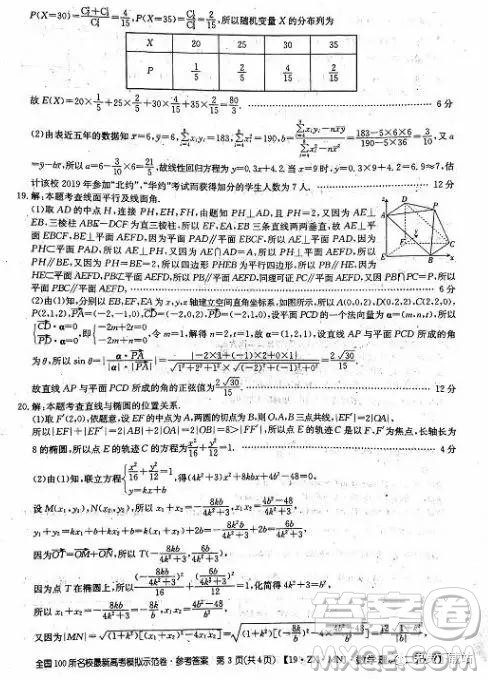 P(X=30)=(C₂²+C₃²)/C₆²=4/15, P(X=35)=C₂²/C₆²=2/15,所以随机变量 X 的分布列为
X 20 25 30 35
P 1/5 2/5 4/15 2/15
故 E(X)=20×1/5+25×2/5+30×4/15+35×2/15=80/3. 6 分
(2)由表近五年的数据知 x=6,y=6, =183, =190,b= =(183-5×6×6)/(190-5×6²)=3/10,又 a
=y-bx,所以 a=6-3/10×6=21/5,故线性回归方程为 y=0.3x+4.2,当 x=9 时,y=0.3×9+4.2=6.9≈7,估
计该校 2019 年参加“北约”,“华约”考试而获得加分的学生人数为 7 人. 12 分
19.解:本题考查线面平行及线面角.
(1)取 AD 的中点 H,连接 PH,EH,FH,由题知 PH⊥AD,且 PH=2,又因为 AE⊥
EB,三棱柱 ABE-DCF 为直三棱柱,所以 EF,EA,EB 三条直线两两垂直,故 AE⊥平
面 EBCF,BE⊥平面 AEFD,因为平面 PAD⊥平面 EBCF,所以 AE⊥平面 PAD,因为
PH⊂平面 PAD,所以 AE⊥PH,又因为 AE∩AD=A,所以 PH⊥平面 AEFD,所以
PH∥BE,又因为 PH=BE=2,所以四边形 PHEB 为平行四边形,所以 PB∥HE,因为
HE⊂平面 AEFD,PB⊄平面 AEFD,所以 PB∥平面 AEFD,同理可证 PC∥平面 AEFD,又因 PB∩PC=P,所以
平面 PBC∥平面 AEFD. 6 分
(2)由(1)知,分别以 EB,EF,EA 为 x,y,z 轴建立空间直角坐标系,如图所示,所以 A(0,0,2),D(0,2,2),C(2,2,0),
P(2,1,2),PA=(-2,-1,0),CD=(-2,0,2),PD=(-2,1,0),设平面 PCD 的一个法向量为 α=(m,n,t),所以
{CD·α=0 PD·α=0,即{-2m+2t=0 -2m+n=0,令 m=1,解得 n=2,t=1,故 α=(1,2,1),设直线 AP 与平面 PCD 所成的角
为 θ,所以 sin θ=|α·PA|/(|α|·|PA|)=|-2×1+(-1)×2+0×1|/(√(1²+2²+1²)×√((-2)²+(-1)²+0²))=2√30/15.
故直线 AP 与平面 PCD 所成的角的正弦值为 2√30/15. 12 分
20.解:本题考查直线与椭圆的位置关系.
(1)取 F′(2,0),依题意,设 EF 的中点为 A,两圆的切点为 B,则 O,A,B 三点共线,|EF′|=2|OA|,
所以|EF|+|EF′|=2|AB|+2|OA|=2|OB|=8>|FF′|,所以点 E 的轨迹 C 是以 F,F′为焦点,长轴长为
8 的椭圆,所以点 E 的轨迹 C 的方程为 x²/16+y²/12=1. 4 分
(2)由(1)知,联立方程{x²/16+y²/12=1 y=kx+b,得(4k²+3)x²+8kbx+4b²-48=0.
设 M(x₁,y₁),N(x₂,y₂),所以 x₁+x₂=-8kb/(4k²+3),x₁x₂=(4b²-48)/(4k²+3),
y₁+y₂=kx₁+b+kx₂+b=k(x₁+x₂)+2b=-8k²b/(4k²+3)+2b=6b/(4k²+3).
因为OT=OM+ON,所以 T(-8kb/(4k²+3),6b/(4k²+3)).
因为点 T 在椭圆上,所以(-8kb/(4k²+3))²/16+(6b/(4k²+3))²/12=1,化简得 4k²+3=b².
所以 x₁+x₂=-8kb/(4k²+3)=-8k/b,x₁x₂=(4b²-48)/b².
又因为|MN|=√((1+k²)[(x₁+x₂)²-4x₁x₂])
全国 100 所名校最新高考模拟示范卷·参考答案 第 3 页(共 4 页) 【19·ZX·MNJ·数学